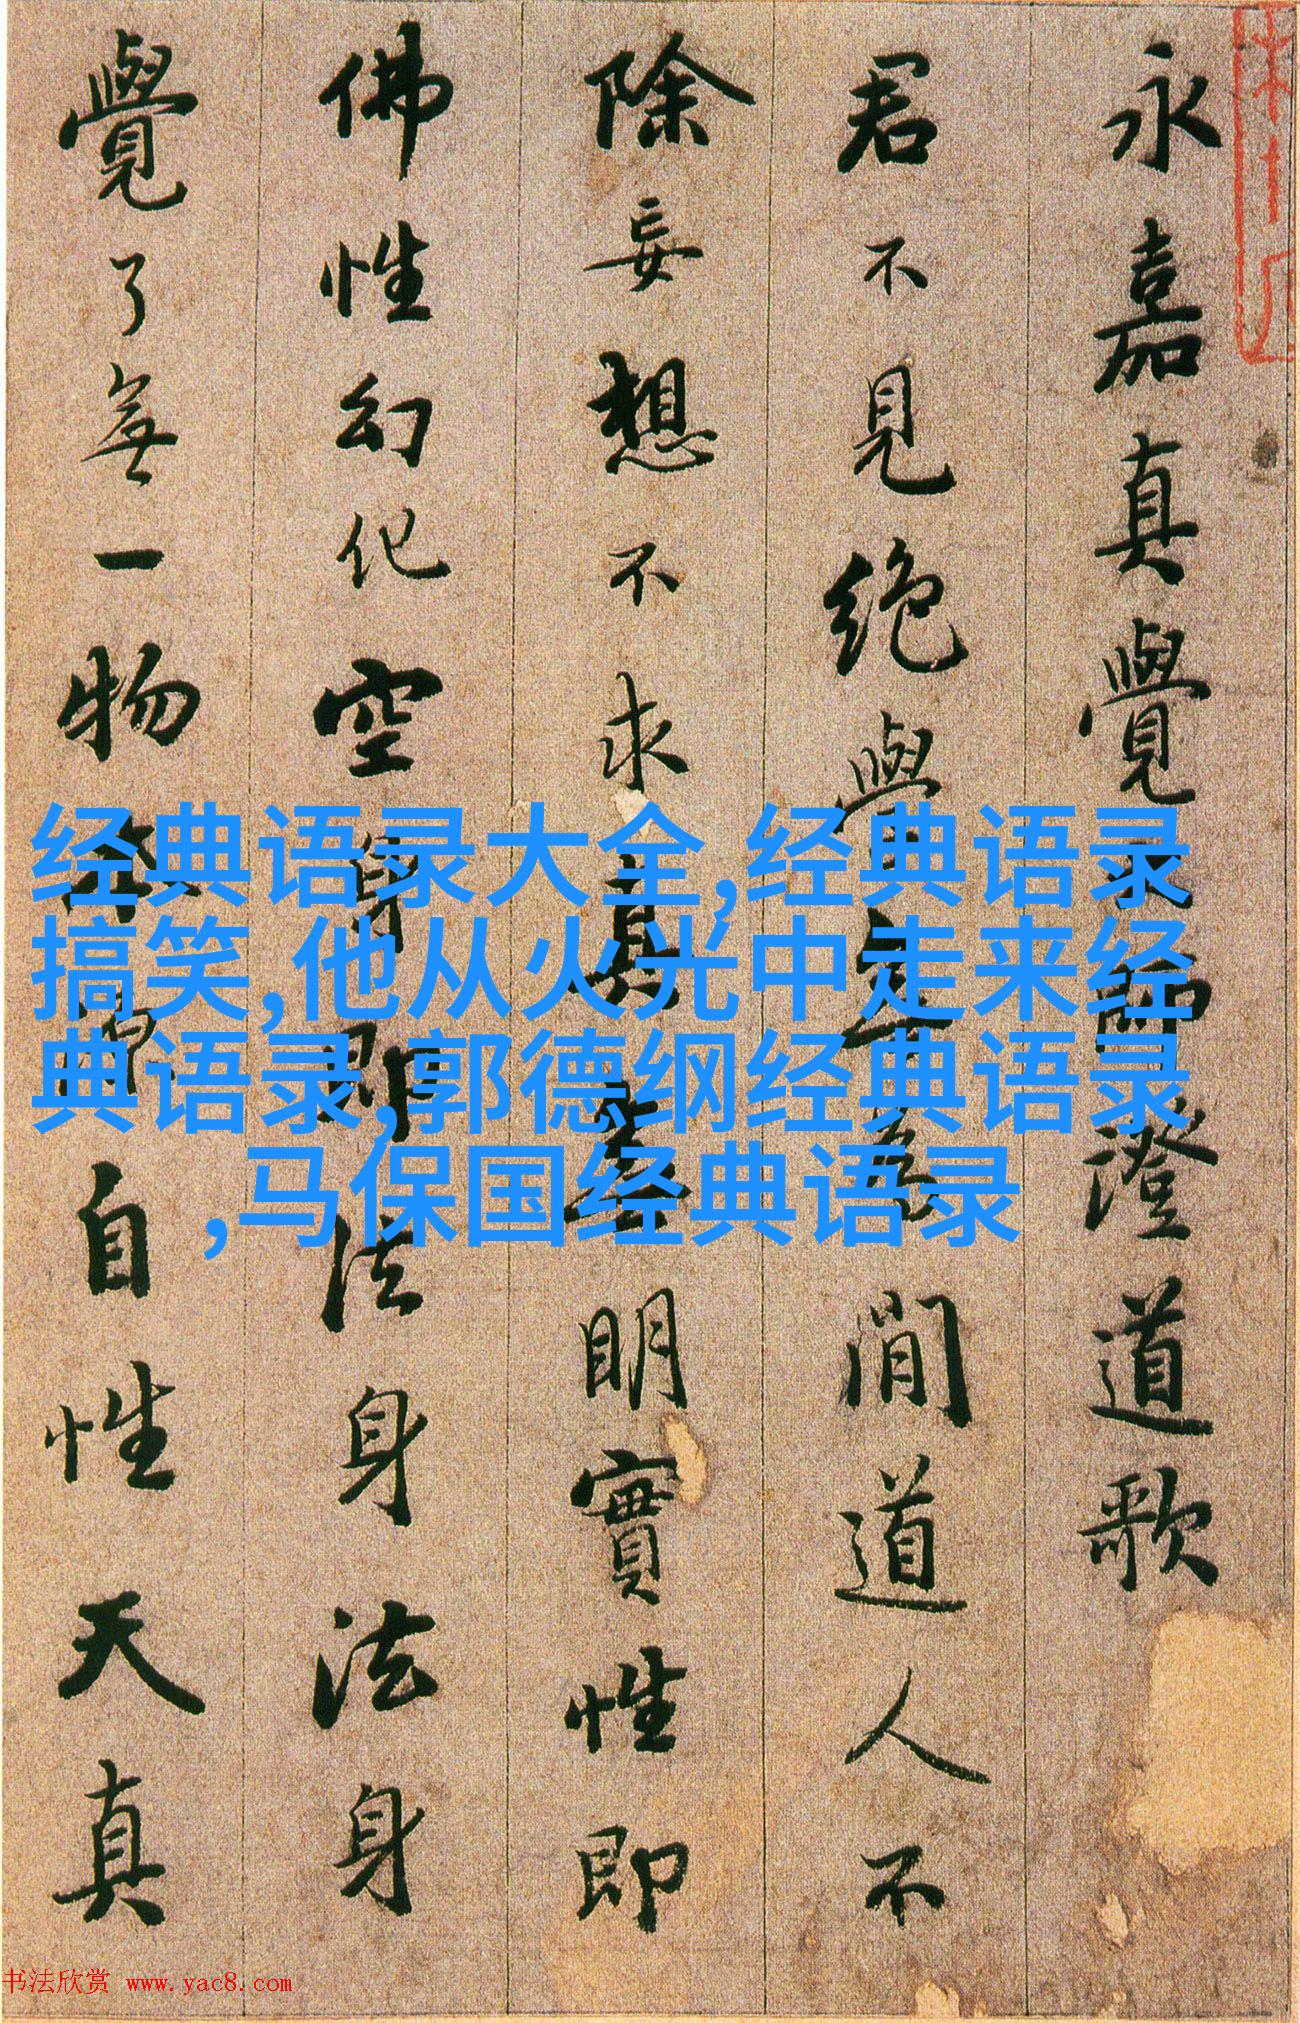 永嘉真覺大師澄道歌
君不見絕學無為閒道人不
除妄想不求真無明實性即
佛性幻化空身即法身法身
覺了無一物本源自性天真
经典语录大全,经典语录
搞笑,他从火光中走来经
典语录,郭德纲经典语录
,马保国经典语录
书法欣赏 www.yac8.com